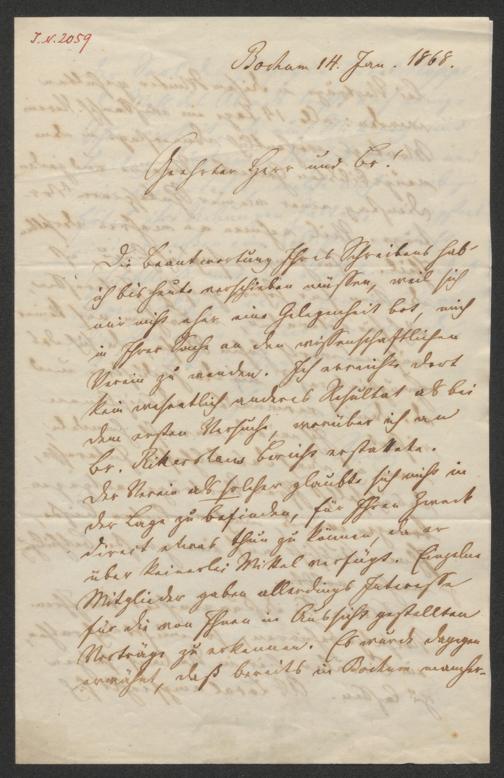 I.N. 2059
Bochum 14. Jan. 1868.
Geehrter Herr und Br.!
Die Beantwortung Ihres Schreibens hab'
ich bis heute verschieben müssen, weil sich
mir nicht eher eine Gelegenheit bot, mich
in Ihrer Sache an den wissenschaftlichen
Verein zu wenden. Ich erreichte dort
kein wesentlich anderes Resultat als bei
dem ersten Versuche, worüber ich an
Br. Bericht erstattete.
Der Verein als solcher glaubte sich nicht in
der Lage zu befinden, für Ihren Zweck
direct etwas thun zu können, da er
über keinerlei Mittel verfügt. Einzelne
Mitglieder gaben allerdings Interesse
für die von Ihnen in Aussicht gestellten
Vorträge zu erkennen. Es wurde dagegen
erwähnt, daß bereits in Bochum mancher-